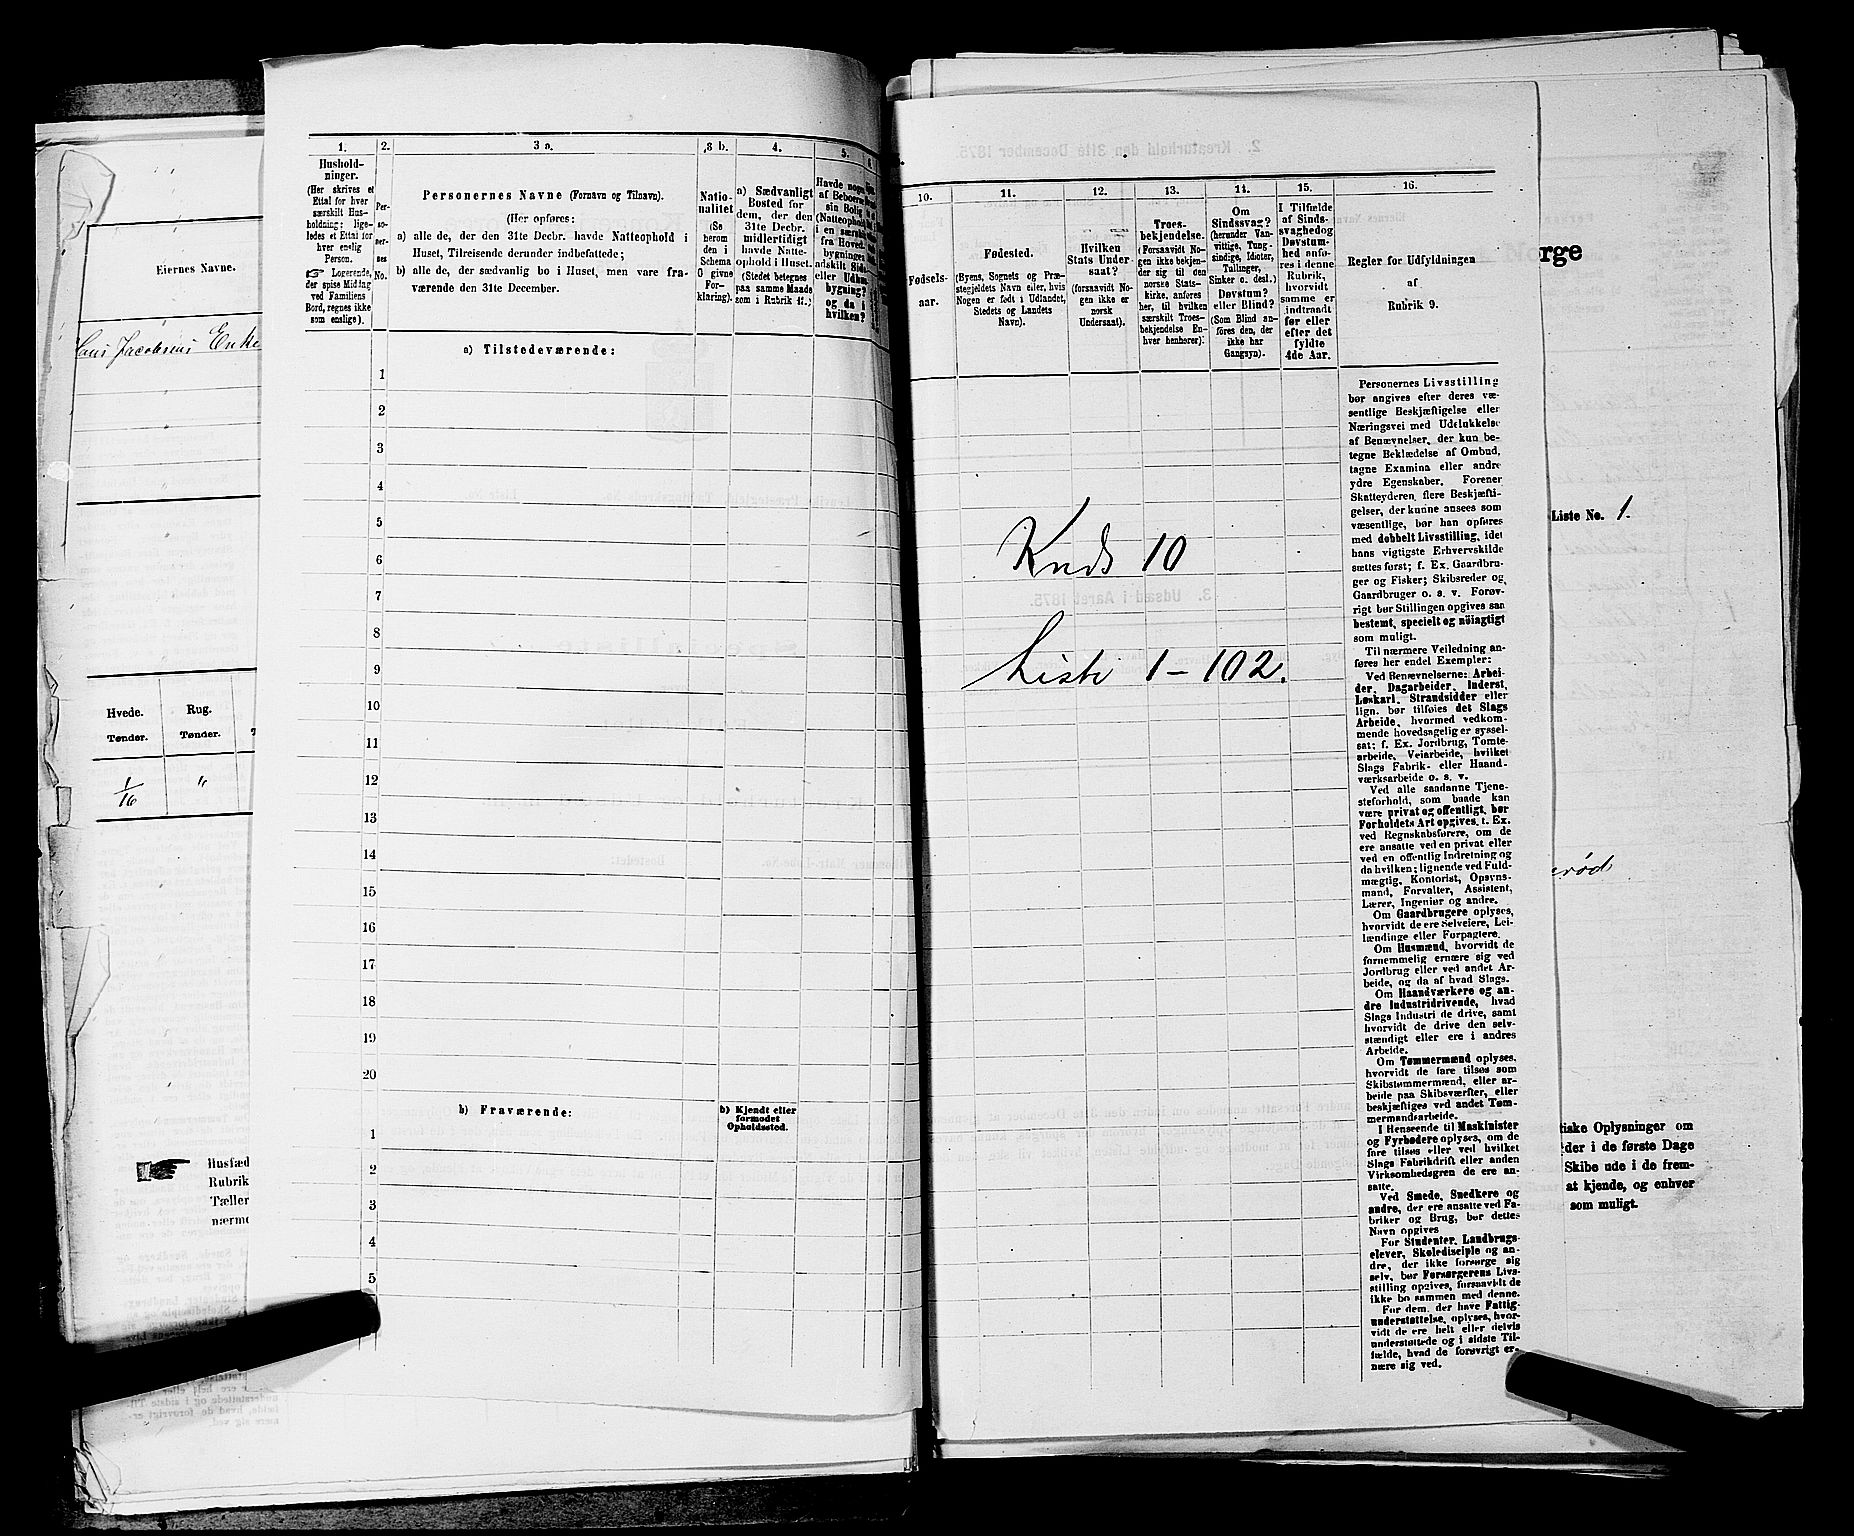 Eiernes Navne.
Hans Jacobsens Enke
Hvede.
Tønder.
Rug.
Tønder.
1/16
"
Husfæd
Rubrik
Tæller
nærme
1.
Hushold-
ninger.
(Her skrives et
Ettal for hver
særskilt Hus-
holdning; lige-
ledes et Ettal for
hver enslig
Person.
☞ Logerende,
der spise Middag
ved Familiens
Bord, regnes ikke
som enslige).
2.
Per-
so-
ner-
nes
No.
3 a.
Personernes Navne (Fornavn og Tilnavn).
(Her opføres:
a) alle de, der den 31te Decbr. havde Natteophold i
Huset, Tilreisende derunder indbefattede;
b) alle de, der sædvanlig bo i Huset, men vare fra-
værende den 31te December.
3 b.
Natio-
nalitet
(Se
herom
den i
Schema
0 givne
For-
klaring).
4.
a) Sædvanligt
Bosted for
dem, der den
31te Decbr.
midlertidigt
havde Natte-
ophold i Huset.
(Stedet betegnes
paa samme Maade
som i Rubrik 11.)
5.
Havde nogen
af Beboerne
sin Bolig
(Natteophold)
i en særskilt
fra Hoved-
bygningen
adskilt Side-
eller Udhus-
bygning?
og da i
hvilken?
6.
a) Tilstedeværende:
1
2
3
4
5
6
7
8
9
10
11
12
13
14
15
16
17
18
19
20
b) Fraværende:
b) Kjendt eller
formodet
Opholdssted.
1
2
3
4
5
10.
Fødsels-
aar.
11.
Fødested.
(Byens, Sognets og Præ-
stegjeldets Navn eller, hvis
Nogen er født i Udlandet,
Stedets og Landets
Navn).
12.
Hvilken
Stats Under-
saat?
(forsaavidt No-
gen ikke er
norsk
Undersaat).
13.
Troes-
bekjendelse.
(Forsaavidt No-
gen ikke bekjen-
der sig til den
norske Stats-
kirke, anføres
her, til hvilken
særskilt Troes-
bekjendelse En-
hver henhører).
14.
Om
Sindssvag?
(herunder Van-
vittige, Tung-
sindige, Idioter,
Tullinger,
Sinker o. desl.)
Døvstum?
eller Blind?
(Som Blind an-
føres den, der
ikke har
Gangsyn).
15.
I Tilfælde
af Sinds-
svaghed og
Døvstum-
hed anfø-
res i denne
Rubrik,
hvorvidt
samme er
indtraadt
før eller
efter det
fyldte
4de Aar.
16.
Regler for Udfyldningen
af
Rubrik 9.
Knds 10
Liste 1 – 102.
Personernes Livsstilling
bør angives efter deres væ-
sentlige Beskjæftigelse eller
Næringsvei med Udelukkelse
af Benævnelser, der kun be-
tegne Beklædelse af Ombud,
tagne Examina eller andre
ydre Egenskaber. Forener
Skatteyderen flere Beskjæfti-
gelser, der kunne ansees som
væsentlige, bør han opføres
med dobbelt Livsstilling, idet
hans vigtigste Erhvervskilde
sættes først; f. Ex. Gaardbru-
ger og Fisker; Skibsreder og
Gaardbruger o. s. v. Forøv-
rigt bør Stillingen opgives saa
bestemt, specielt og nøiagtigt
som muligt.
Til nærmere Veiledning an-
føres her endel Exempler:
Ved Benævnelserne: Arbei-
der, Dagarbeider, Inderst,
Løskarl, Strandsidder eller
lign. bør tilføies det Slags
Arbeide, hvormed vedkom-
mende hovedsagelig er syssel-
sat; f. Ex. Jordbrug, Tomte-
arbeide, Veiarbeide, hvilket
Slags Fabrik- eller Haand-
værksarbeide o. s. v.
Ved alle saadanne Tjene-
steforhold, som baade kan
være privat og offentligt, bør
Forholdets Art opgives, t. Ex.
ved Regnskabsførere, om de
ere ansatte ved en privat eller
ved en offentlig Indretning og
da hvilken; lignende ved Fuld-
mægtig, Kontorist, Opsyns-
mand, Forvalter, Assistent,
Lærer, Ingeniør og andre.
Om Gaardbrugere oplyses,
hvorvidt de ere Selveiere, Lei-
lændinge eller Forpagtere.
Om Husmænd, hvorvidt de
fornemmelig ernære sig ved
Jordbrug eller ved andet Ar-
beide, og da af hvad Slags.
Om Haandværkere og an-
dre Industridrivende, hvad
Slags Industri de drive, samt
hvorvidt de drive den selv-
stændigt eller ere i andres
Arbeide.
Om Tømmermænd oplyses,
hvorvidt de fare tilsøs som
Skibstømmermænd, eller ar-
beide paa Skibsværfter, eller
beskjæftiges ved andet Tøm-
mermandsarbeide.
I Henseende til Maskinister
og Fyrbødere oplyses, om de
fare tilsøs eller ved hvilket
Slags Fabrikdrift eller anden
Virksomhedsgren de ere an-
satte.
Ved Smede, Snedkere og
andre, der ere ansatte ved Fa-
briker og Brug, bør dettes
Navn opgives
For Studenter, Landbrugs-
elever, Skoledisciple og an-
dre, der ikke forsørge sig
selv, bør Forsørgerens Livs-
stilling opgives, forsaavidt de
ikke bo sammen med denne.
For dem, der have Fattig-
understøttelse, oplyses, hvor-
vidt de ere helt eller delvis
understøttede og i sidste Til-
fælde, hvad de forøvrigt er-
nære sig ved.
orge
Liste No. 1.
erød
tiske Oplysninger om
der i de første Dage
Skibe ude i de frem-
at kjende, og enhver
som muligt.